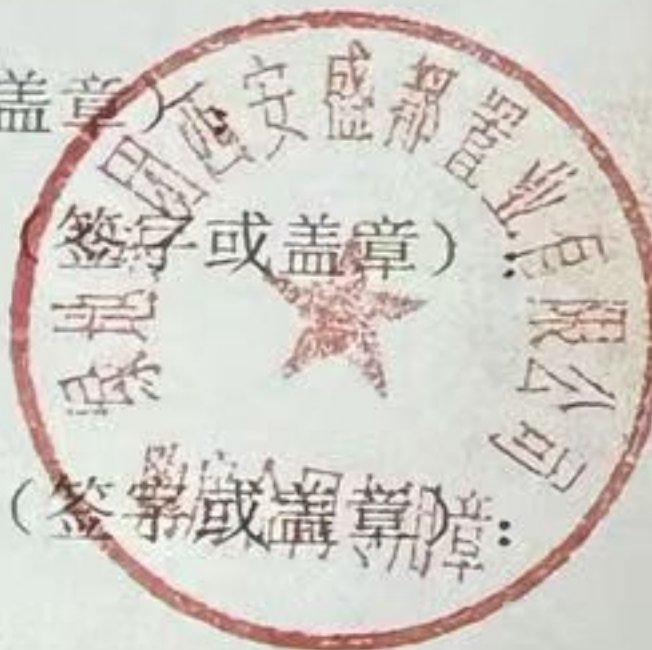 盖章）
（签字或盖章）：
（签字或盖章）：
绿地集团西安盛都置业有限公司